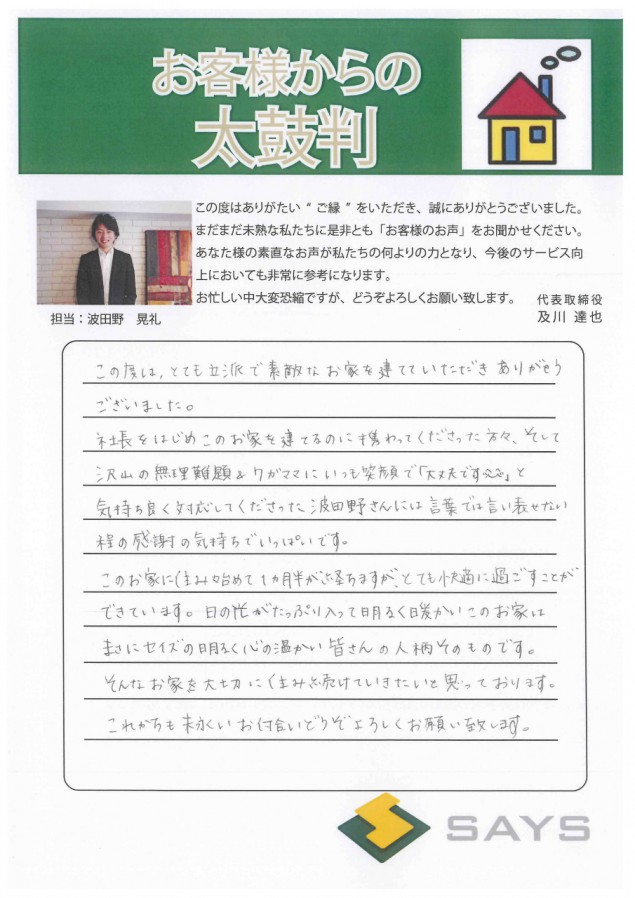 お客様からの
太鼓判
この度はありがたい“ご縁”をいただき、誠にありがとうございました。
まだまだ未熟な私たちに是非とも「お客様のお声」をお聞かせください。
あなた様の素直なお声が私たちの何よりの力となり、今後のサービス向
上においても非常に参考になります。
お忙しい中大変恐縮ですが、どうぞよろしくお願い致します。
代表取締役
及川 達也
担当：波田野 晃礼
この度は、とても立派で素敵なお家を建てていただき ありがとう
ございました。
社長をはじめこのお家を建てるのに携わってくださった方々、そして
沢山の無理難題&ワガママにいつも笑顔で「大丈夫です」と
気持ち良く対応してくださった波田野さんには言葉では言い表せない
程の感謝の気持ちでいっぱいです。
このお家に住み始めて1ヵ月半が経ちますが、とても快適に過ごすことが
できています。日の光がたっぷり入って明るく暖かいこのお家は
まさにセイズの明るく心の温かい皆さんの人柄そのものです。
そんなお家を大切に住み続けていきたいと思っております。
これからも末永いお付合いどうぞよろしくお願い致します。
SAYS